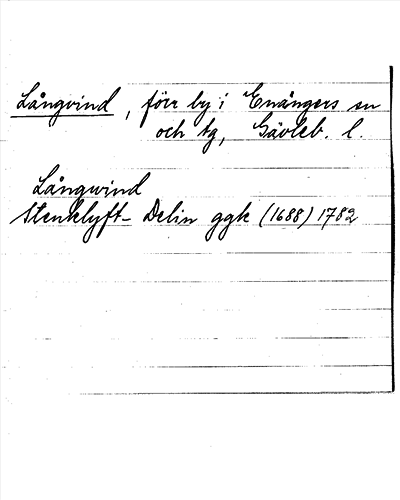 Långvind, förr by i Enångers sn
och tg, Gävleb. l.
Långwind
Stenklyft- Delin ggk (1688) 1782